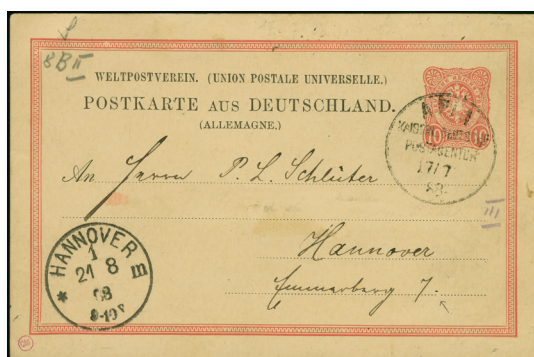 8B II
WELTPOSTVEREIN. (UNION POSTALE UNIVERSELLE.)
POSTKARTE AUS DEUTSCHLAND.
(ALLEMAGNE.)
10 10
APIA
KAISERL. DEUTSCHE
POSTAGENTUR
17/7
88.
An Herrn P. L. Schlüter
III
Hannover
Emmerberg 7.
* HANNOVER
1
21 8
88
8-9 V